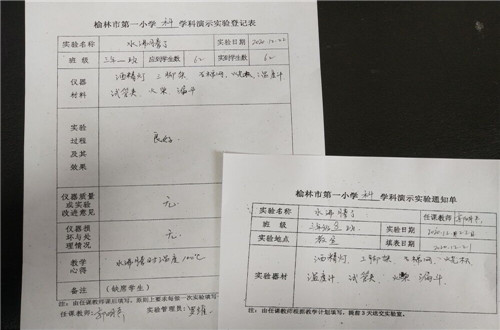 榆林市第一小学 科 学科演示实验登记表
实验名称 水沸腾了 实验日期 2020.12.22
班 级 三年一班 应到学生数 62 实到学生数 62
仪器
材料
酒精灯 三脚架 石棉网 烧杯 温度计
试管夹 火柴
实验
过程
及其
效果
良好.
仪器质量
或实验
改进意见
无.
仪器损
坏与处
理情况
无.
教学
心得
水沸腾时温度100℃
备注 (缺席学生)
注:由任课教师课后填写,原则上要求每做一次实验填写
任课教师: 实验管理员:
榆林市第一小学 科 学科演示实验通知单
实验名称 水沸腾了 任课教师
班 级 三年级 班 实验日期 2020.12.22日
实验地点 教室 填表日期 2020.12.21
实验器材
酒精灯 三脚架 石棉网 烧杯
温度计 试管夹 火柴
注:由任课教师根据教学计划填写,提前3天送交实验室.